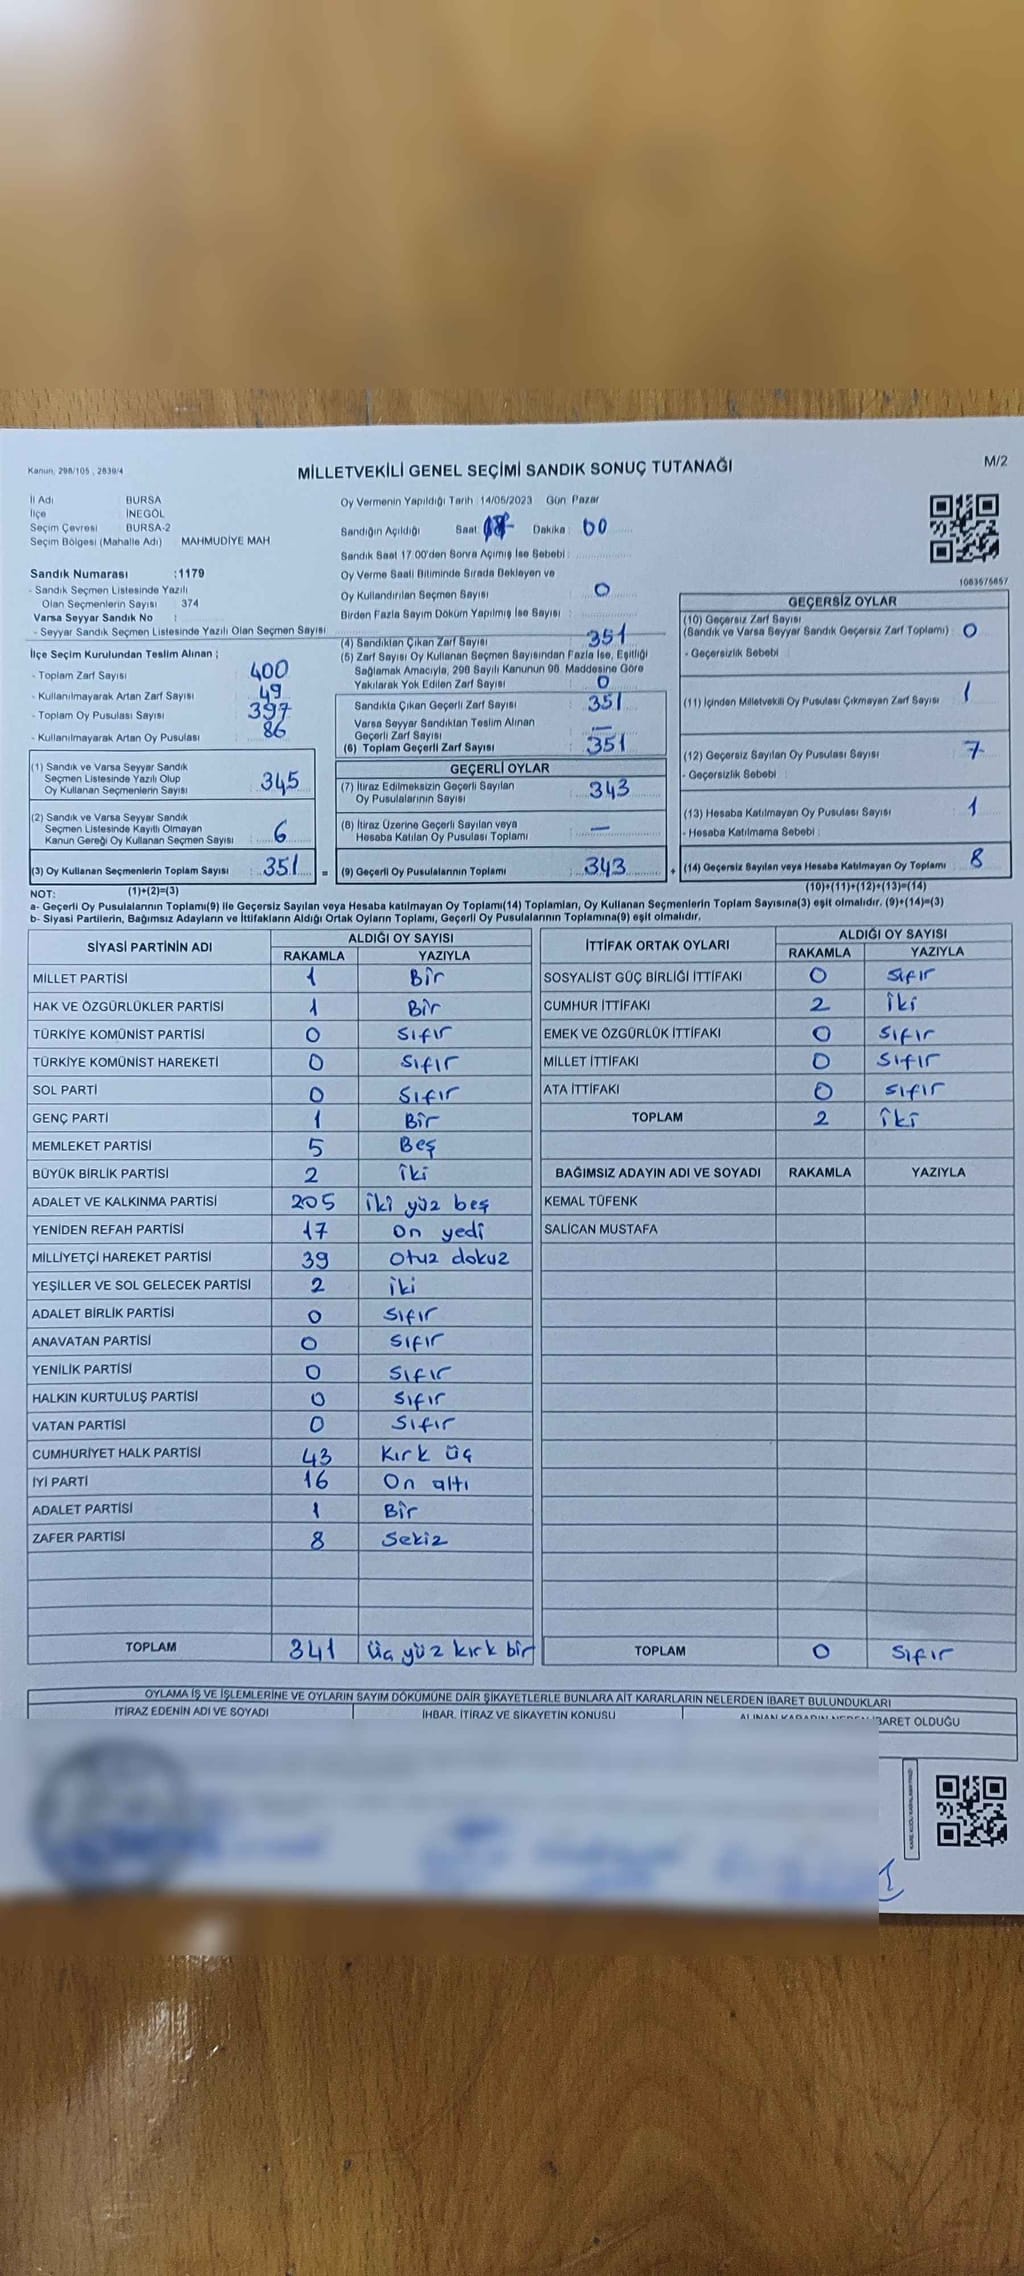 Kanun, 298/105 , 2839/4
MİLLETVEKİLİ GENEL SEÇİMİ SANDIK SONUÇ TUTANAĞI
M/2
İl Adı BURSA
İlçe İNEGÖL
Seçim Çevresi BURSA-2
Seçim Bölgesi (Mahalle Adı) MAHMUDİYE MAH
Oy Vermenin Yapıldığı Tarih :14/05/2023 Gün Pazar
Sandığın Açıldığı Saat: Dakika : 00
Sandık Saat 17:00'den Sonra Açımış İse Sebebi :
Sandık Numarası :1179
- Sandık Seçmen Listesinde Yazılı
Olan Seçmenlerin Sayısı : 374
Varsa Seyyar Sandık No :
- Seyyar Sandık Seçmen Listesinde Yazılı Olan Seçmen Sayısı
Oy Verme Saati Bitiminde Sırada Bekleyen ve
Oy Kullandırılan Seçmen Sayısı : 0
Birden Fazla Sayım Döküm Yapılmış İse Sayısı :
İlçe Seçim Kurulundan Teslim Alınan ;
- Toplam Zarf Sayısı : 400
- Kullanılmayarak Artan Zarf Sayısı : 49
- Toplam Oy Pusulası Sayısı : 397
- Kullanılmayarak Artan Oy Pusulası : 86
(1) Sandık ve Varsa Seyyar Sandık
Seçmen Listesinde Yazılı Olup
Oy Kullanan Seçmenlerin Sayısı : 345
(2) Sandık ve Varsa Seyyar Sandık
Seçmen Listesinde Kayıtlı Olmayan
Kanun Gereği Oy Kullanan Seçmen Sayısı : 6
(3) Oy Kullanan Seçmenlerin Toplam Sayısı : 351 =
(4) Sandıktan Çıkan Zarf Sayısı : 351
(5) Zarf Sayısı Oy Kullanan Seçmen Sayısından Fazla İse, Eşitliği
Sağlamak Amacıyla, 298 Sayılı Kanunun 98. Maddesine Göre
Yakılarak Yok Edilen Zarf Sayısı : 0
Sandıkta Çıkan Geçerli Zarf Sayısı : 351
Varsa Seyyar Sandıktan Teslim Alınan
Geçerli Zarf Sayısı : —
(6) Toplam Geçerli Zarf Sayısı : 351
GEÇERLİ OYLAR
(7) İtiraz Edilmeksizin Geçerli Sayılan
Oy Pusulalarının Sayısı : 343
(8) İtiraz Üzerine Geçerli Sayılan veya
Hesaba Katılan Oy Pusulası Toplamı : —
(9) Geçerli Oy Pusulalarının Toplamı : 343 +
1063575857
GEÇERSİZ OYLAR
(10) Geçersiz Zarf Sayısı
(Sandık ve Varsa Seyyar Sandık Geçersiz Zarf Toplamı) : 0
- Geçersizlik Sebebi :
(11) İçinden Milletvekili Oy Pusulası Çıkmayan Zarf Sayısı : 1
(12) Geçersiz Sayılan Oy Pusulası Sayısı : 7
- Geçersizlik Sebebi :
(13) Hesaba Katılmayan Oy Pusulası Sayısı : 1
- Hesaba Katılmama Sebebi :
(14) Geçersiz Sayılan veya Hesaba Katılmayan Oy Toplamı : 8
NOT: (1)+(2)=(3) (10)+(11)+(12)+(13)=(14)
a- Geçerli Oy Pusulalarının Toplamı(9) ile Geçersiz Sayılan veya Hesaba katılmayan Oy Toplamı(14) Toplamları, Oy Kullanan Seçmenlerin Toplam Sayısına(3) eşit olmalıdır. (9)+(14)=(3)
b- Siyasi Partilerin, Bağımsız Adayların ve İttifakların Aldığı Ortak Oyların Toplamı, Geçerli Oy Pusulalarının Toplamına(9) eşit olmalıdır.
SİYASİ PARTİNİN ADI ALDIĞI OY SAYISI
RAKAMLA YAZIYLA
MİLLET PARTİSİ 1 Bir
HAK VE ÖZGÜRLÜKLER PARTİSİ 1 Bir
TÜRKİYE KOMÜNİST PARTİSİ 0 Sıfır
TÜRKİYE KOMÜNİST HAREKETİ 0 Sıfır
SOL PARTİ 0 Sıfır
GENÇ PARTİ 1 Bir
MEMLEKET PARTİSİ 5 Beş
BÜYÜK BİRLİK PARTİSİ 2 iki
ADALET VE KALKINMA PARTİSİ 205 iki yüz beş
YENİDEN REFAH PARTİSİ 17 On yedi
MİLLİYETÇİ HAREKET PARTİSİ 39 Otuz dokuz
YEŞİLLER VE SOL GELECEK PARTİSİ 2 iki
ADALET BİRLİK PARTİSİ 0 Sıfır
ANAVATAN PARTİSİ 0 Sıfır
YENİLİK PARTİSİ 0 Sıfır
HALKIN KURTULUŞ PARTİSİ 0 Sıfır
VATAN PARTİSİ 0 Sıfır
CUMHURİYET HALK PARTİSİ 43 Kırk üç
İYİ PARTİ 16 On altı
ADALET PARTİSİ 1 Bir
ZAFER PARTİSİ 8 Sekiz
TOPLAM 341 üç yüz kırk bir
İTTİFAK ORTAK OYLARI ALDIĞI OY SAYISI
RAKAMLA YAZIYLA
SOSYALİST GÜÇ BİRLİĞİ İTTİFAKI 0 Sıfır
CUMHUR İTTİFAKI 2 iki
EMEK VE ÖZGÜRLÜK İTTİFAKI 0 Sıfır
MİLLET İTTİFAKI 0 Sıfır
ATA İTTİFAKI 0 Sıfır
TOPLAM 2 iki
BAĞIMSIZ ADAYIN ADI VE SOYADI RAKAMLA YAZIYLA
KEMAL TÜFENK
SALİCAN MUSTAFA
TOPLAM 0 Sıfır
OYLAMA İŞ VE İŞLEMLERİNE VE OYLARIN SAYIM DÖKÜMÜNE DAİR ŞİKAYETLERLE BUNLARA AİT KARARLARIN NELERDEN İBARET BULUNDUKLARI
İTİRAZ EDENİN ADI VE SOYADI İHBAR, İTİRAZ VE ŞİKAYETİN KONUSU ALINAN KARARIN NEDEN İBARET OLDUĞU